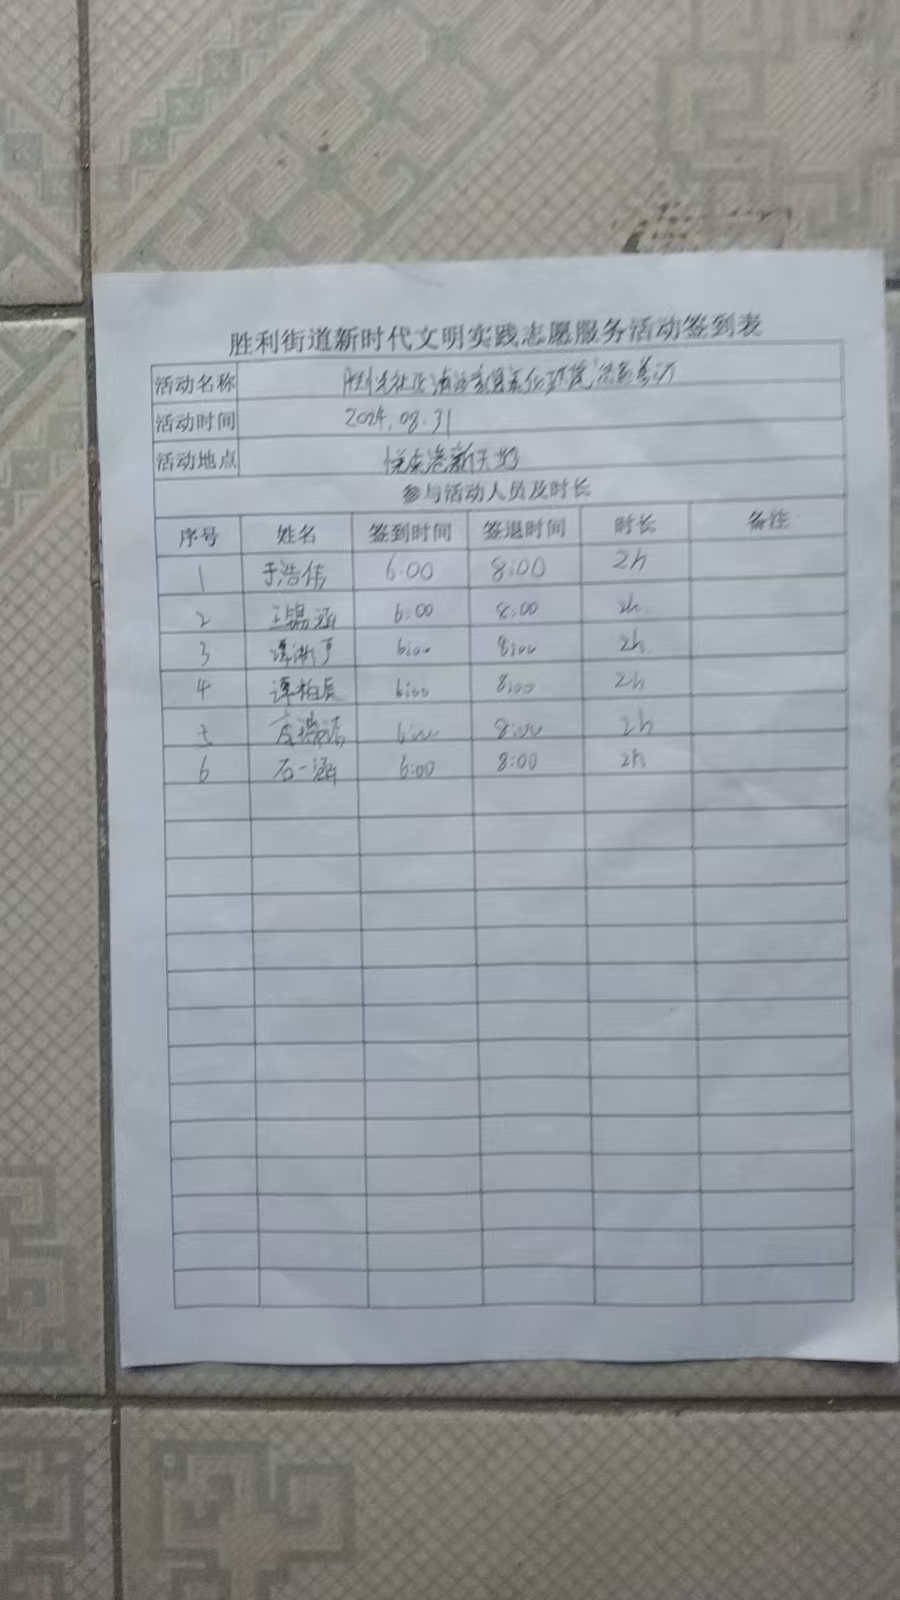 胜利街道新时代文明实践志愿服务活动签到表
活动名称
活动时间 2024.08.31
活动地点 新天地
参与活动人员及时长
序号 姓名 签到时间 签退时间 时长 备注
1 于浩伟 6:00 8:00 2h
2 王锡涵 6:00 8:00 2h
3 6:00 8:00 2h
4 谭柏辰 6:00 8:00 2h
5 6:00 8:00 2h
6 石一涵 6:00 8:00 2h